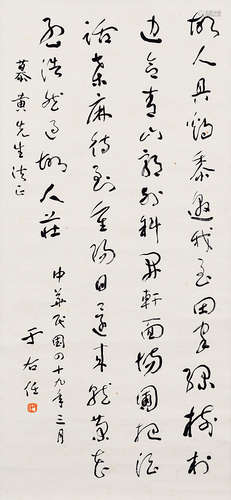 故人具鷄黍邀我至田家綠樹村
邊合青山郭外斜開軒面場圃把酒
話桑麻待到重陽日還來就菊花
孟浩然過故人莊
慕黃先生法正
中華民國四十九年三月
于右任